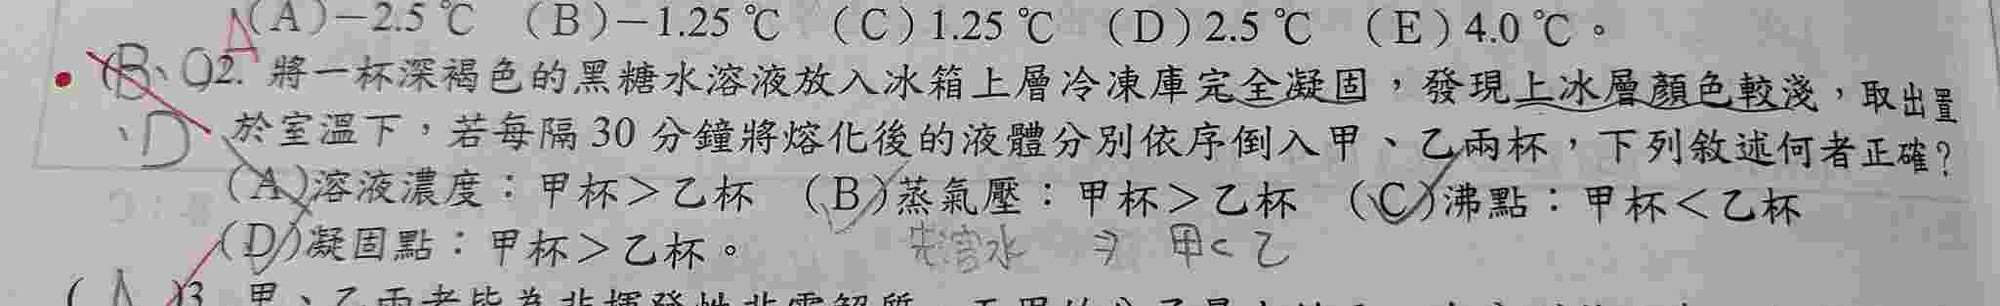 A (A)－2.5 ℃ (B)－1.25 ℃ (C)1.25 ℃ (D)2.5 ℃ (E)4.0 ℃。
(B、C)2. 將一杯深褐色的黑糖水溶液放入冰箱上層冷凍庫完全凝固，發現上冰層顏色較淺，取出置
、D 於室溫下，若每隔 30 分鐘將熔化後的液體分別依序倒入甲、乙兩杯，下列敘述何者正確？
(A)溶液濃度：甲杯＞乙杯 (B)蒸氣壓：甲杯＞乙杯 (C)沸點：甲杯＜乙杯
(D)凝固點：甲杯＞乙杯。 先溶水 ⇒ 甲<乙
( A )3. 甲、乙兩者皆為非揮發性非電解質